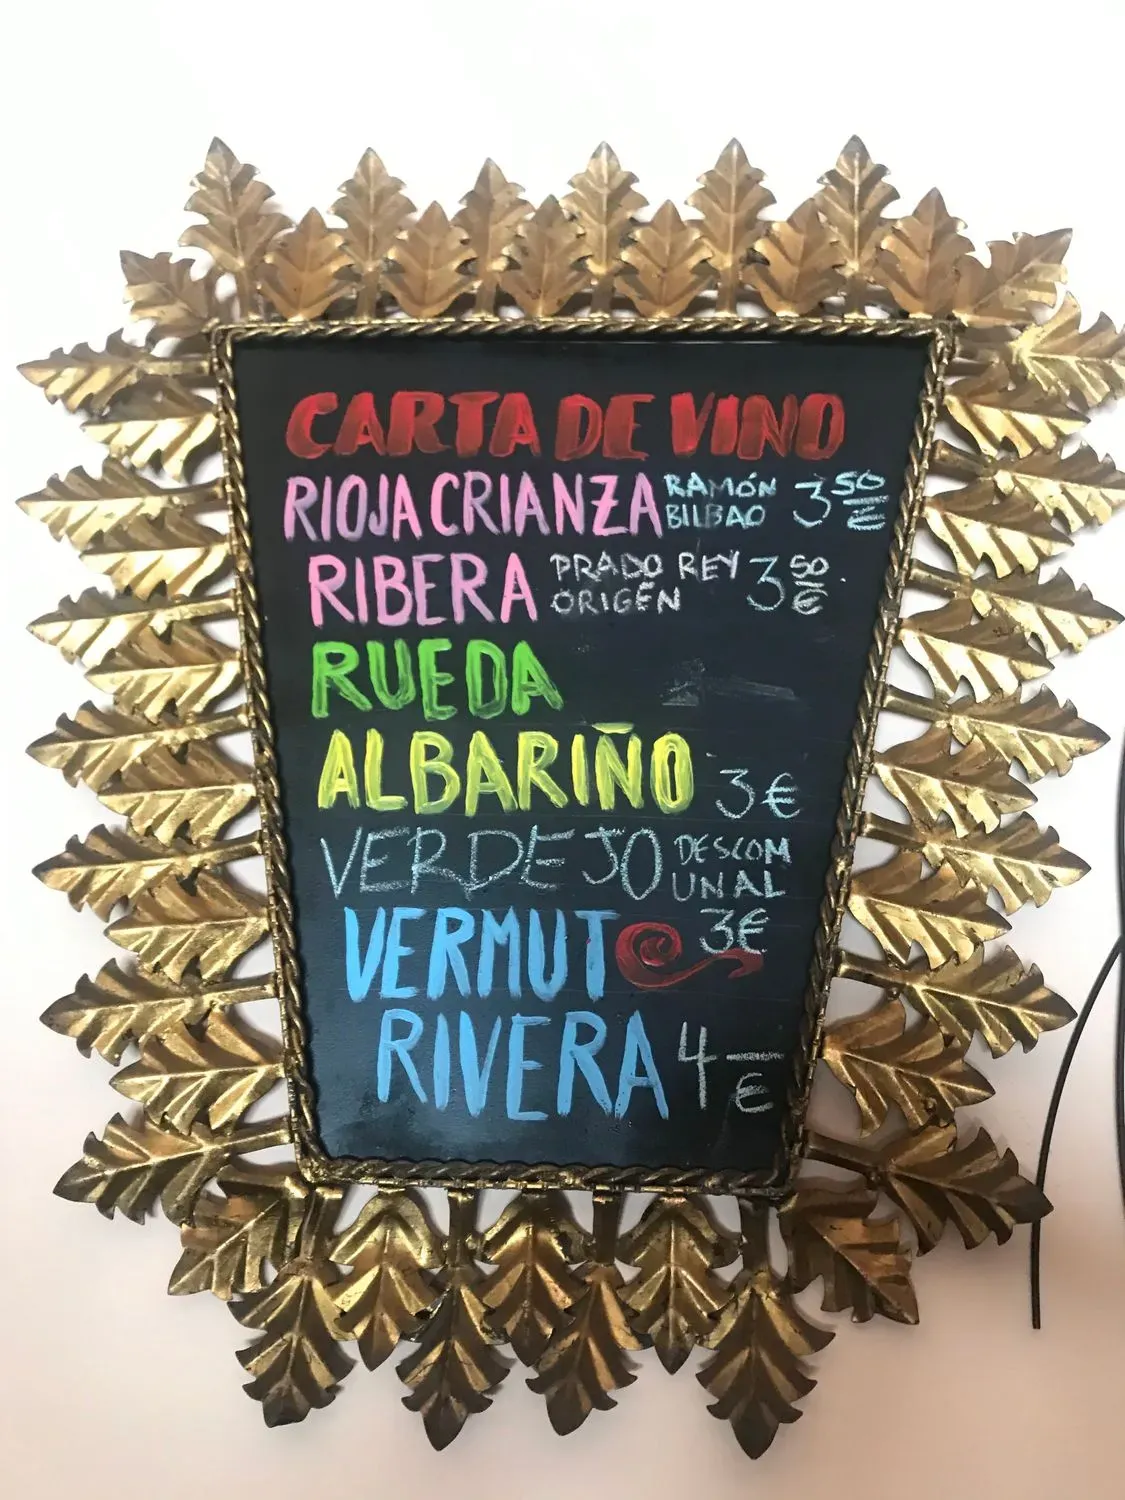 CARTA DE VINO
RIOJA CRIANZA RAMÓN BILBAO 3 50 €
RIBERA PRADO REY ORIGEN 3 50 €
RUEDA
ALBARIÑO 3 €
VERDEJO DESCOMUNAL 3€
VERMUT
RIVERA 4 €